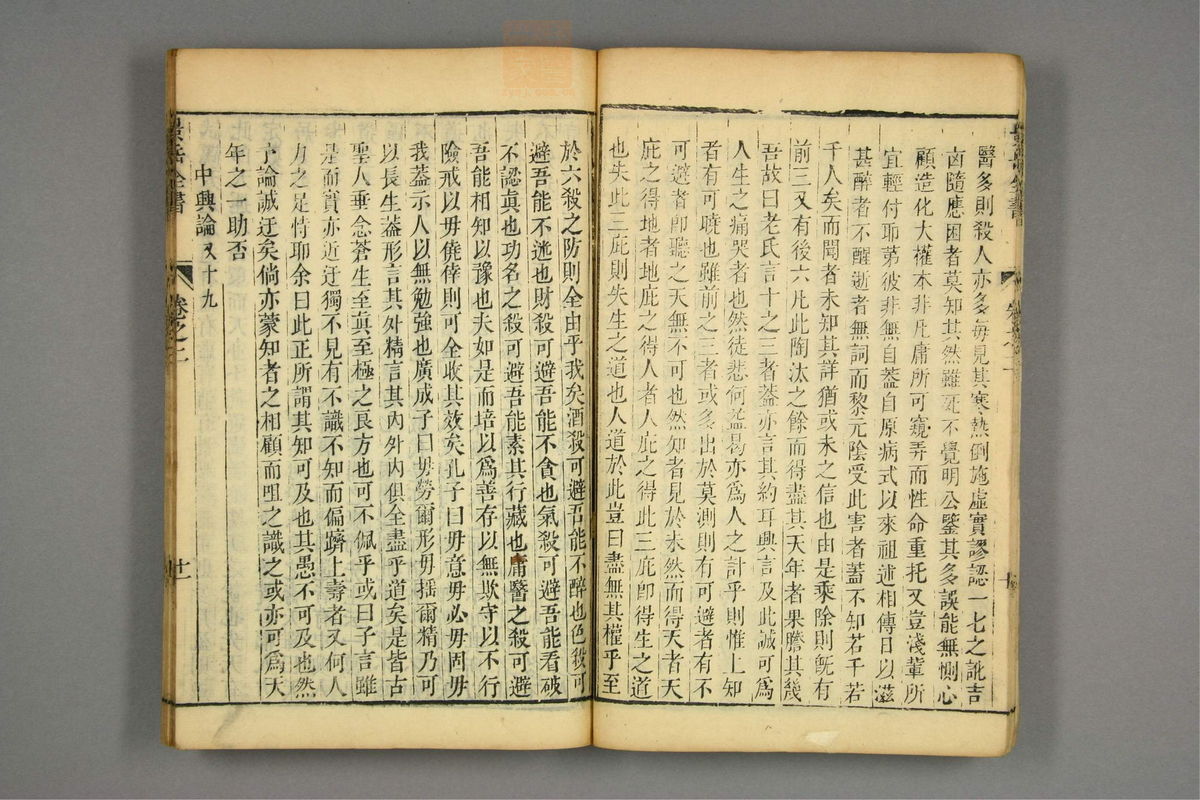 醫多則殺人亦多每見其寒熱倒施虛實謬認一七之訛吉
凶隨應困者莫知其然雖死不覺明公鑒其多誤能無惻心
顧造化大權本非凡庸所可窺弄而性命重托又豈淺輩所
宜輕付耶第彼非無自蓋自原病式以來祖述相傳日以滋
甚醉者不醒逝者無詞而黎元陰受此害者蓋不知若千若
千人矣而聞者未知其詳猶或未之信也由是乘除則旣有
前三又有後六凡此陶汰之餘而得盡其天年者果賸其幾
吾故曰老氏言十之三者蓋亦言其約耳興言及此誠可爲
人生之痛哭者也然徒悲何益曷亦爲人之計乎則惟上知
者有可曉也雖前之三者或多出於莫測則有可避者有不
可避者卽聽之天無不可也然知者見於未然而得天者天
庇之得地者地庇之得人者人庇之得此三庇卽得生之道
也失此三庇則失生之道也人道於此豈曰盡無其權乎至
於六殺之防則全由乎我矣酒殺可避吾能不醉也色殺可
避吾能不迷也財殺可避吾能不貪也氣殺可避吾能看破
不認眞也功名之殺可避吾能素其行藏也庸醫之殺可避
吾能相知以豫也夫如是而培以爲善存以無欺守以不行
險戒以毋僥倖則可全收其效矣孔子曰毋意毋必毋固毋
我蓋示人以無勉強也廣成子曰毋勞爾形毋搖爾精乃可
以長生蓋形言其外精言其內外內俱全盡乎道矣是皆古
聖人垂念蒼生至眞至極之良方也可不佩乎或曰子言雖
是而實亦近迂獨不見有不識不知而偏躋上壽者又何人
力之足恃耶余曰此正所謂其知可及也其愚不可及也然
予論誠迂矣倘亦蒙知者之相顧而咀之識之或亦可爲天
年之一助否
中興論又十九
景岳全書
卷之二
廿二